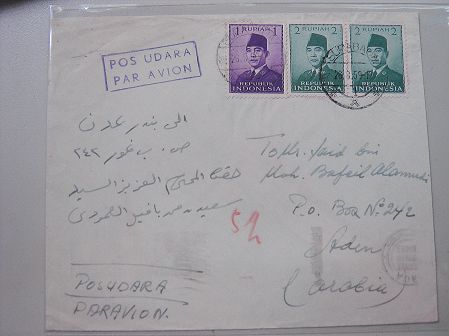 POS UDARA
PAR AVION
1 RUPIAH 1
REPUBLIK
INDONESIA
2 RUPIAH 2
REPUBLIK
INDONESIA
2 RUPIAH 2
REPUBLIK
INDONESIA
الى بندر عدن
ص. ب نمبر ٢٤٢
السيد
سعيد بن محمد بافيل العمودي
To Mr. Said bin
Moh. Bafeil Alamudi
P.O. Box No 242
Aden
(Arabia)
POS UDARA
PARAVION.